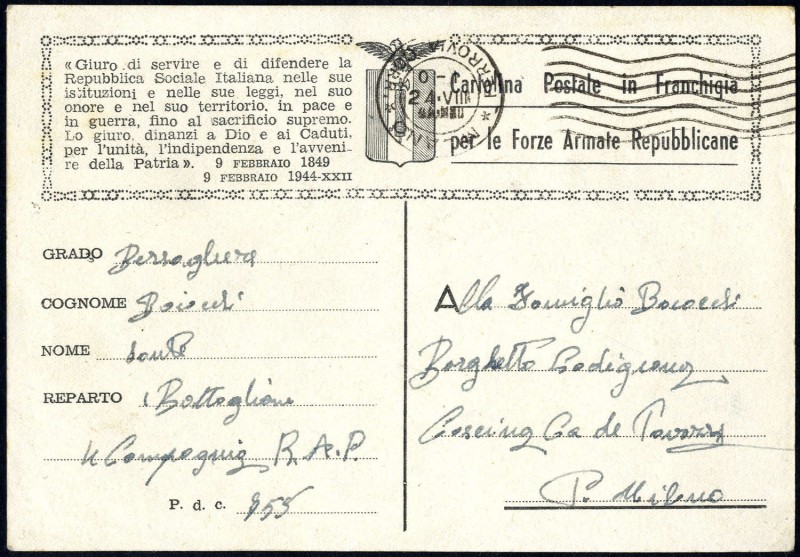 « Giuro di servire e di difendere la
Repubblica Sociale Italiana nelle sue
istituzioni e nelle sue leggi, nel suo
onore e nel suo territorio, in pace e
in guerra, fino al sacrificio supremo.
Lo giuro, dinanzi a Dio e ai Caduti,
per l'unità, l'indipendenza e l'avveni-
re della Patria ». 9 FEBBRAIO 1849
9 FEBBRAIO 1944-XXII
Cartolina Postale in Franchigia
per le Forze Armate Repubblicane
FERROVIA
24·VIII
GRADO Bersagliere
COGNOME
NOME
REPARTO 1 Battaglione
4 Compagnia R.A.P.
P. d. c. 855
Alla Famiglia
Borghetto Lodigiano
Cascina Ca de
P. Milano